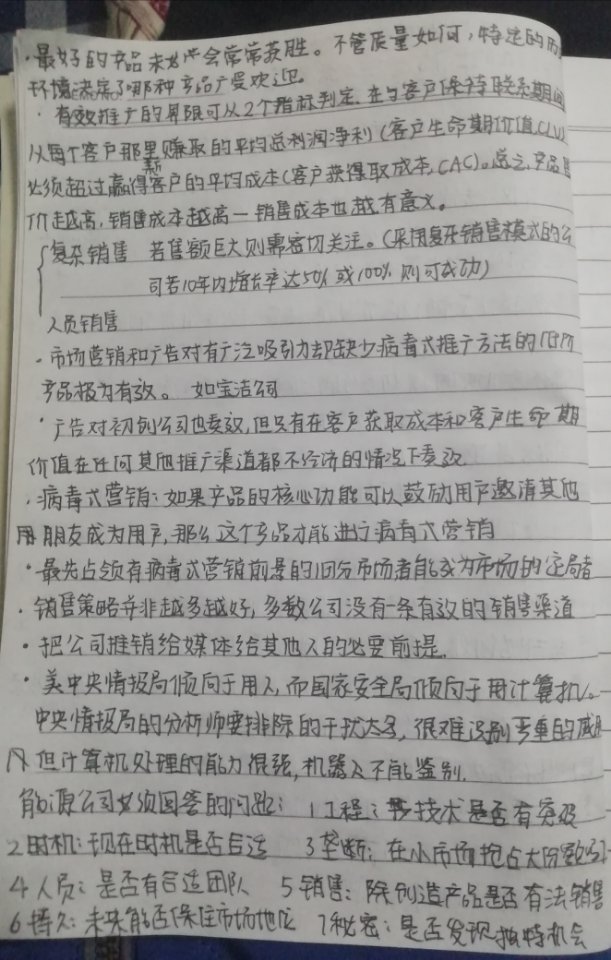 ·最好的产品未必会常常获胜。不管质量如何,特定的历
环境决定了哪种产品广受欢迎。
·有效推广的界限可从2个指标判定.在与客户保持联系期间
从每个客户那里赚取的平均总利润净利(客户生命期价值,CLV)
必须超过赢得新客户的平均成本(客户获得取成本,CAC)。总之,产品
价越高,销售成本越高一销售成本也越有意义。
复杂销售 若售额巨大则需密切关注。(采用复杂销售模式的公
司若10年内增长率达50%或100%则可成功)
人员销售
·市场营销和广告对有广泛吸引力却缺少病毒式推广方法的低价
产品极为有效。如宝洁公司
·广告对初创公司也奏效,但只有在客户获取成本和客户生命期
价值在任何其他推广渠道都不经济的情况下奏效
·病毒式营销:如果产品的核心功能可以鼓励用户邀请其他
朋友成为用户,那么这个产品才能进行病毒式营销
·最先占领有病毒式营销前景的细分市场者能成为市场的定局者
·销售策略并非越多越好,多数公司没有一条有效的销售渠道
·把公司推销给媒体给其他人的必要前提.
·美中央情报局倾向于用人,而国家安全局倾向于用计算机。
中央情报局的分析师要排除的干扰太多,很难识别严重的威胁
但计算机处理的能力很强,机器人不能鉴别.
能源公司必须回答的问题: 1工程:技术是否有突破
2时机:现在时机是否合适 3垄断:在小市场抢占大份额
4人员:是否有合适团队 5销售:除创造产品是否有法销售
6持久:未来能否保住市场地位 7秘密:是否发现独特机会